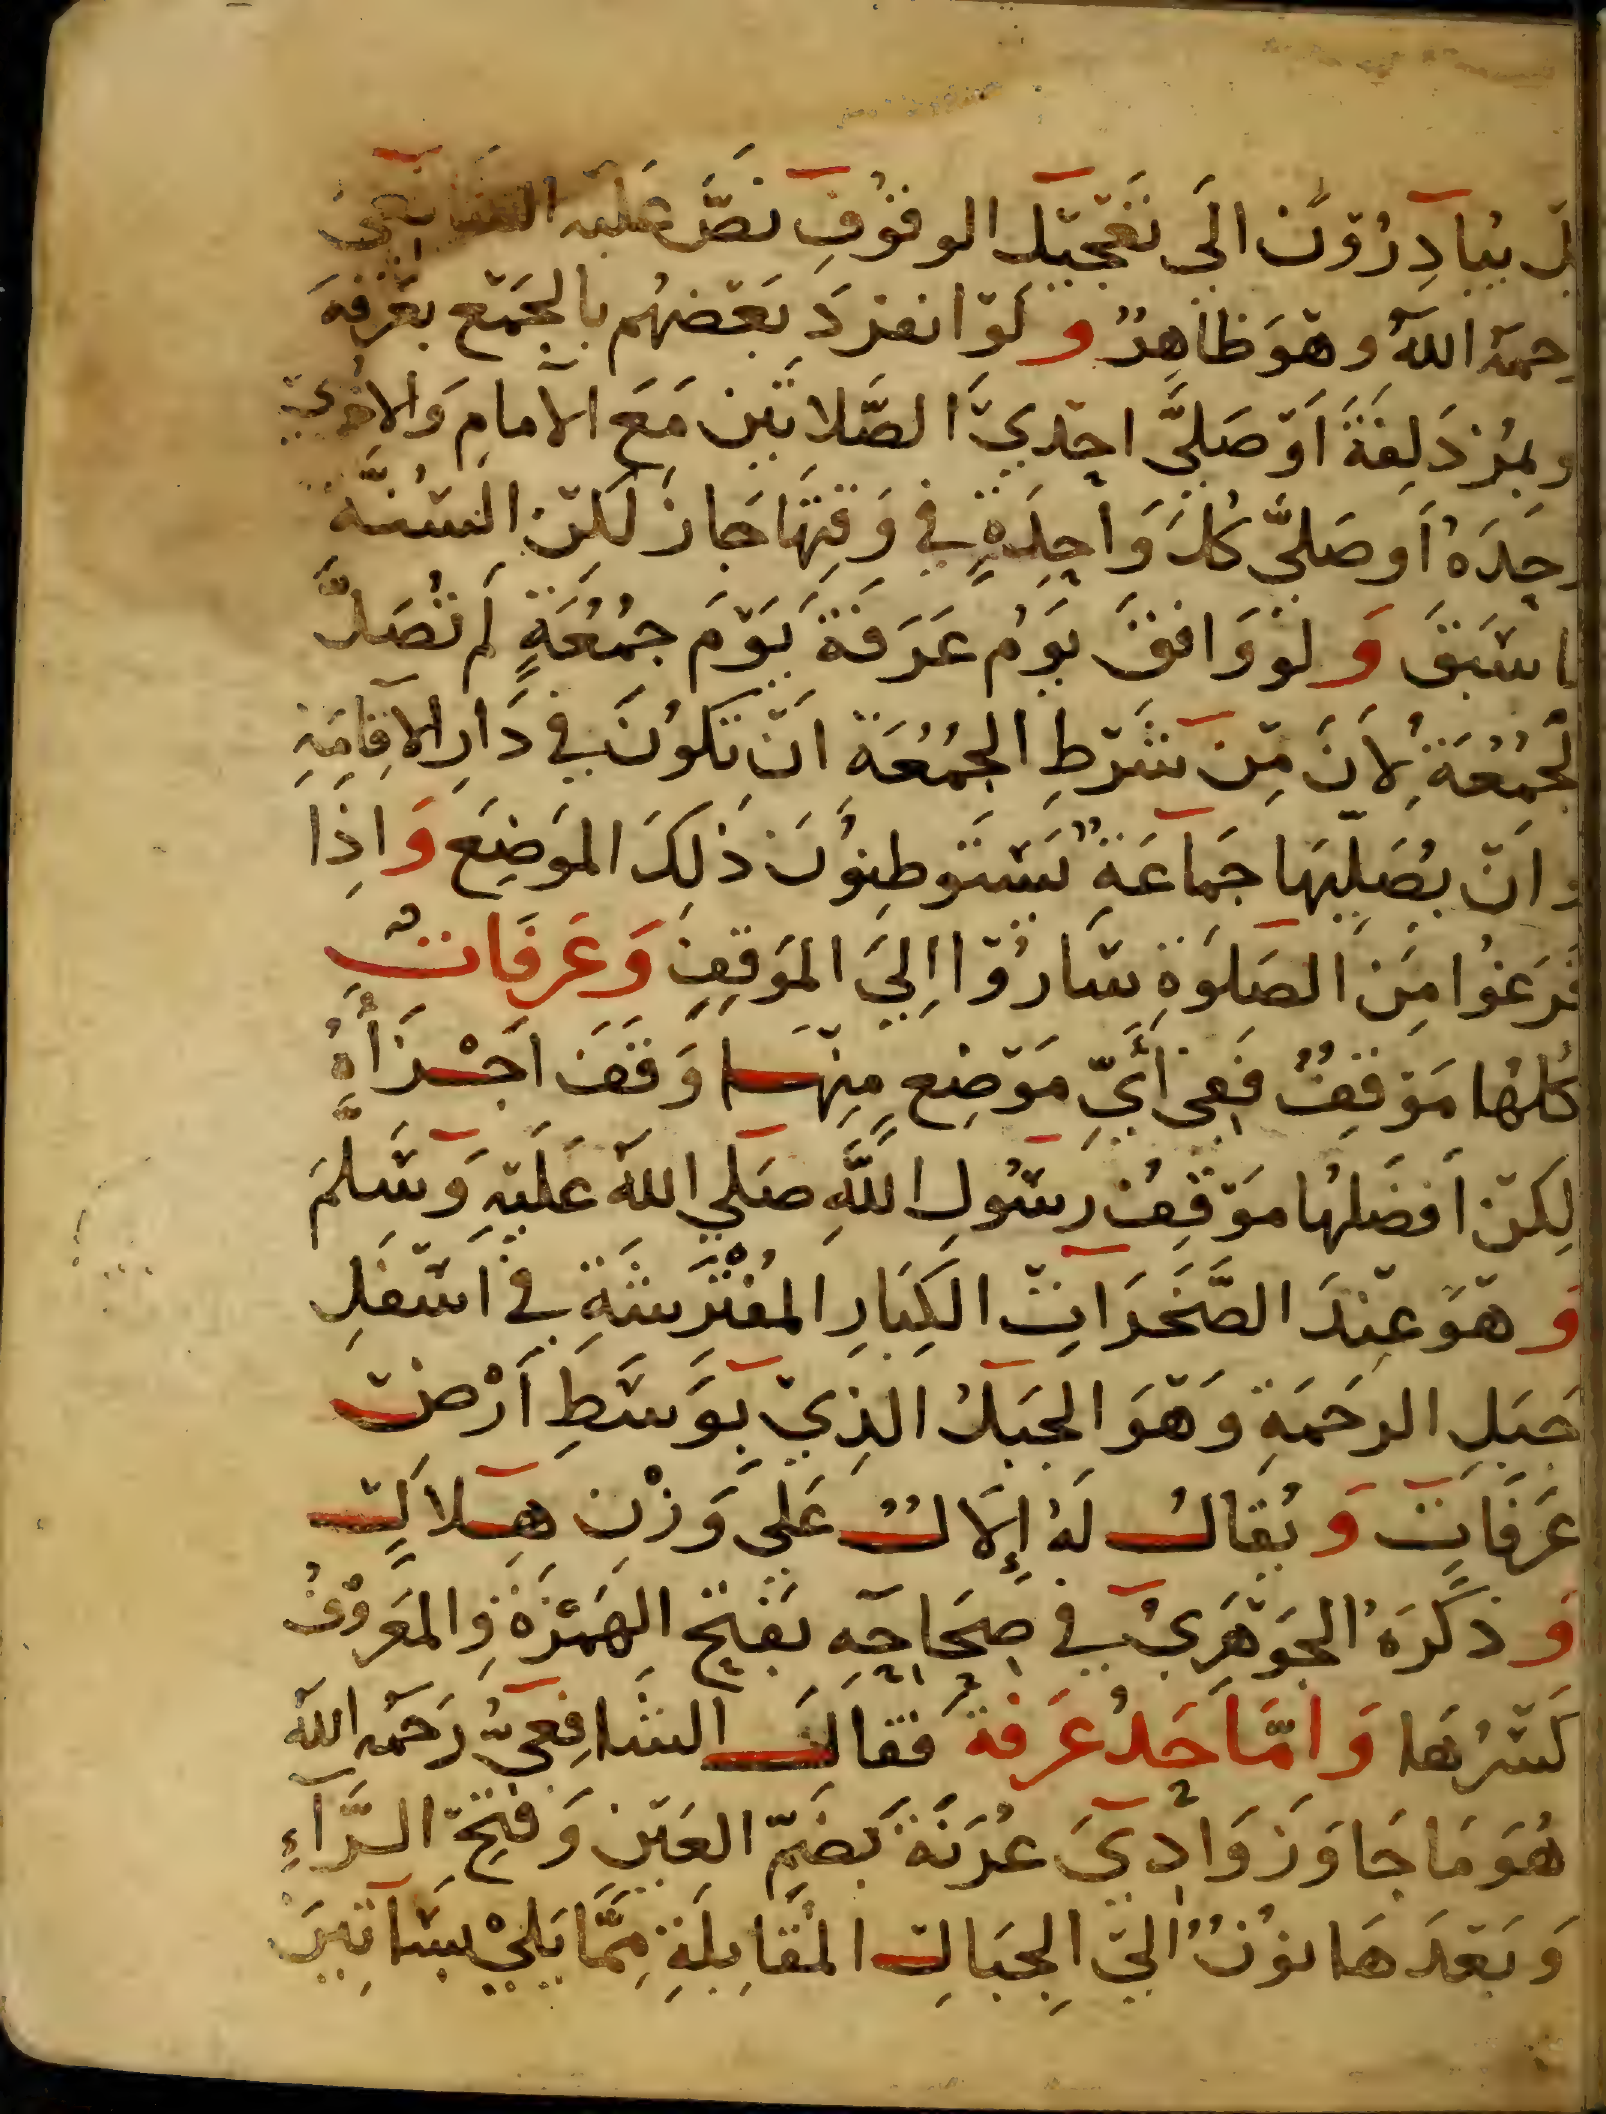 بل يُبَادِرُوْنَ الَى تَعْجِيْل الوقُوْفِ نَصَّ عَلَيْه الشافعىُ
رحمه اللهُ وهوَ ظاهِرٌ وَلَوْ انفردَ بَعْضهُم بالجَمْع بعَرَفةَ
وبمُزدَلِفَةَ اَوْ صَلىَّ احْدَيْ الصَّلاتَيْن مَعَ الامامِ وَالاخريْ
وحدَهُ اَو صَلىَّ كُلَ وَاحِدَةٍ في وَقتِهَا جَازَ لكِنْ السُنَّه
ما سَبَقَ وَلوْ وَافقَ يوَمُ عَرَفَةَ يَوْمَ جمُعَةٍ لم تُصَلَّ
الجُمُعَةُ لِأنَ مِنْ شَرْطِ الجُمُعَةِ انْ تكوُنَ في دَارِ الاقامَةِ
وانْ يصَلِيَها جَماعَةٌ يسْتَوطِنوُنَ ذلِكَ الموَضِعَ وَاذِا
فَرَغوُا مِنَ الصَلوَةِ سَارُوْا الِيَ الموَقِفِ وَعَرَفَاتٌ
كُلهُا مَوْقِفٌ فَفِى أَيِّ مَوْضِعٍ مِنْهَا وَقَفَ اَجْزَأَهُ
لكِنْ اَفضَلهُا مَوْقِفُ رسُولِ اللَّهِ صَلي اللهُ عَلَيْهِ وَسَلمَ
وَهوَ عِنْدَ الصَّخَرَاتِ الكِبَارِ المُفْتَرَشَةِ في اَسْفَلِ
جَبَلِ الرحَمَةِ وَهْوَ الجَبَلُ الذِيْ بِوَسَطِ اَرْضِ
عَرَفَاتٍ وَيُقالُ لهُ إِلَالٌ عَلَي وَزْنِ هِلَالٍ
وَذكَرَهُ الجَوْهَرِىُ في صِحَاحِهِ بفَتحِ الهَمْزَةِ والمَعَروْفُ
كَسْرُهَا وَامَّا حَدُ عَرَفة فقَالَ الشافِعىُّ رَحمَه اللهُ
هُوَ مَا جَاوَزَ وَادِيَ عُرَنَةَ بَضَمِّ العَيْنِ وَفَتحِ الرَّاءِ
وَبَعْدَهَا نوُنٌ الِىَ الجِبَالِ المقَابِلَةِ مِمَّا يَلِيْ بسَاتِيَن